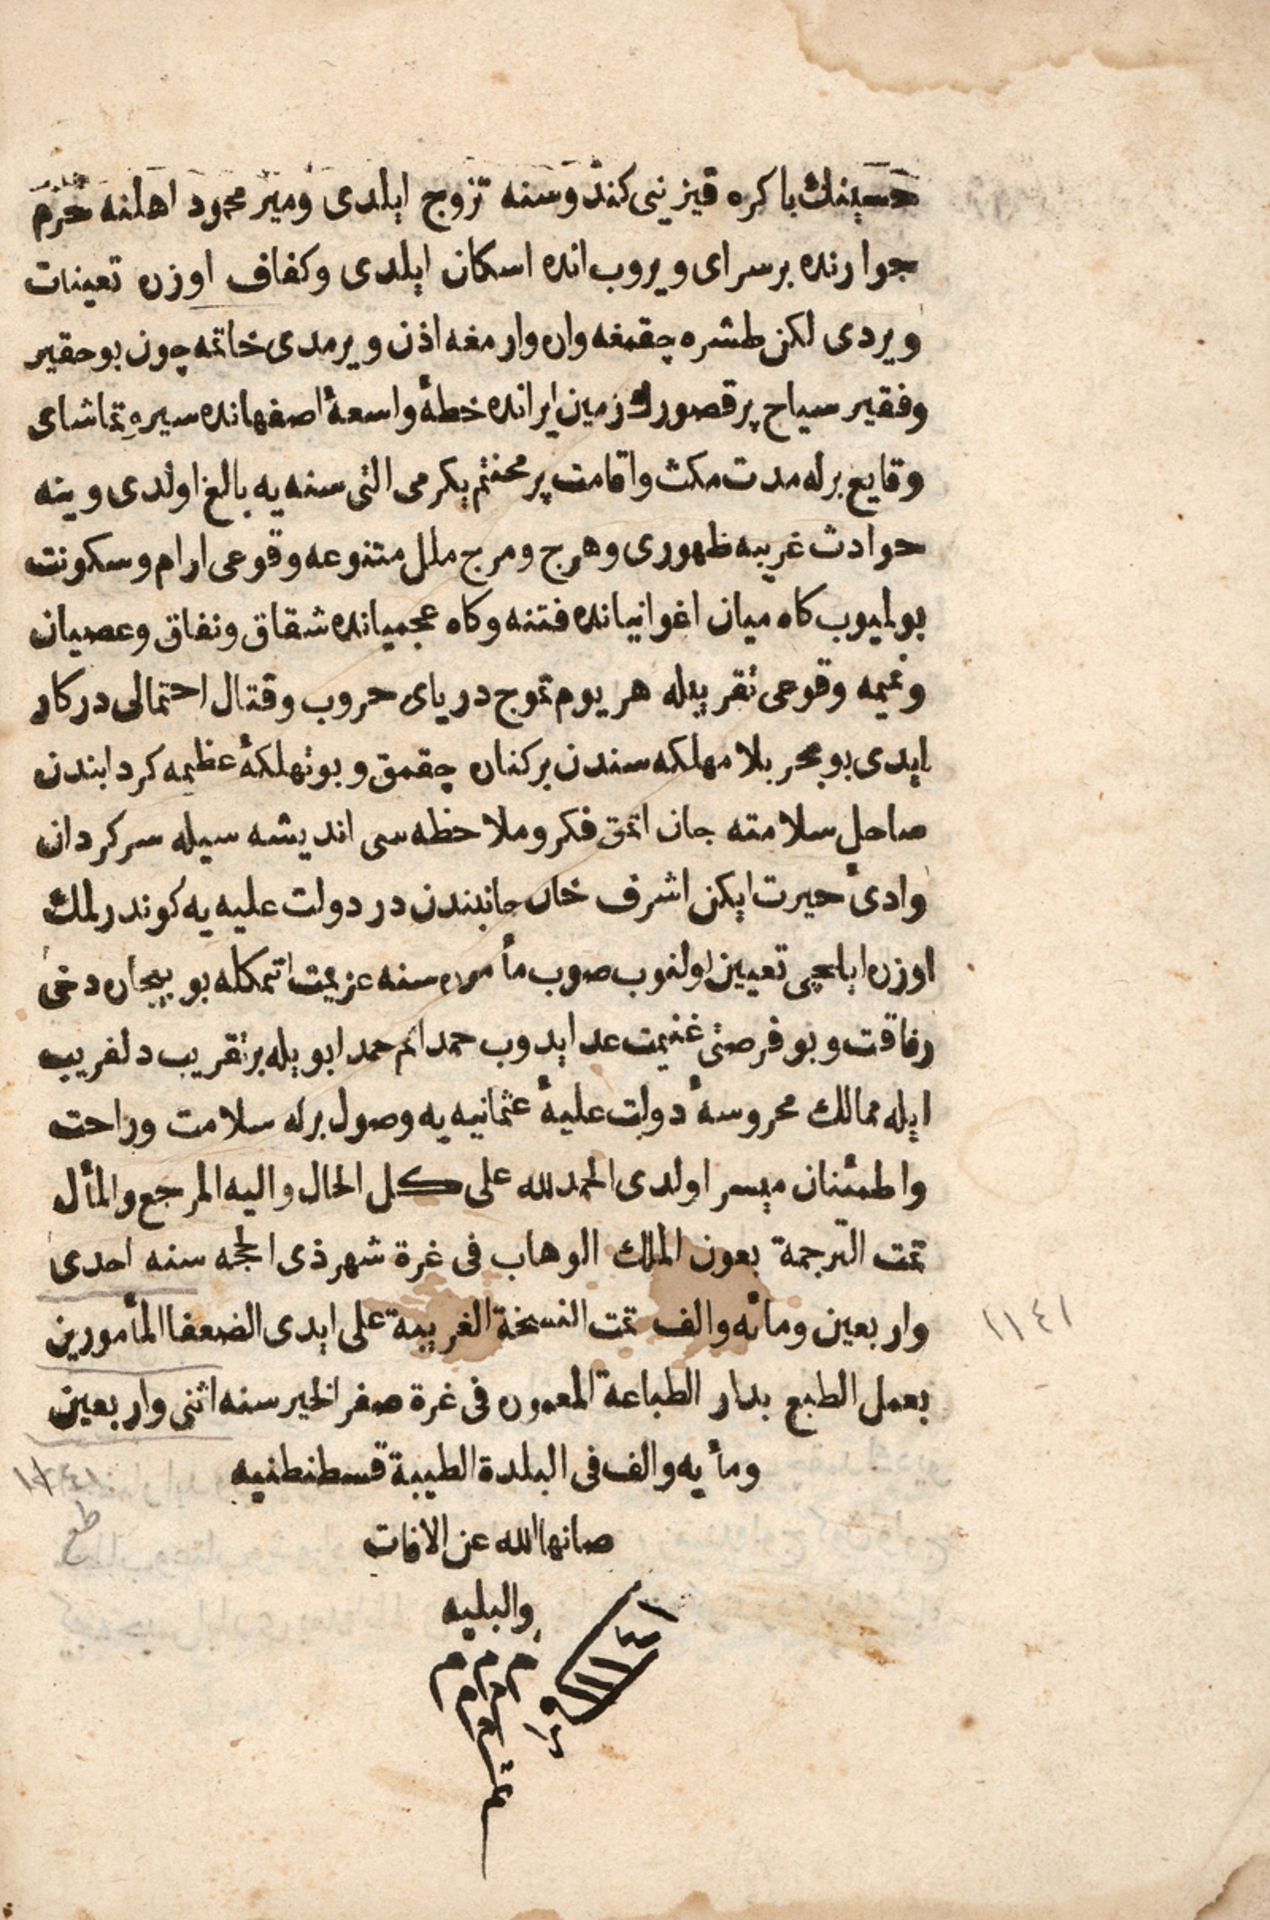 حسینك باكره قیزینی كندوسنه تزوج ایلدی ومیر محمود اهلنه حرم
جوارنده برسرای ویروب انده اسكان ایلدی وكفاف اوزره تعینات
ویردی لكن طشره چقمغه واره وارمغه اذن ویرمدی خاتمه چون بوحقیر
وفقیر سیاح پرقصورك زمین ایرانده خطهٔ واسعهٔ اصفهانده سیره تماشای
وقایع برله مدت مكث واقامت پرمحنتم یكرمی التی سنه یه بالغ اولدی وینه
حوادث غریبه ظهوری وهرج ومرج ملل متنوعه وقوعی ارام وسكونت
بولمیوب كاه میان اغوانیانده فتنه وكاه عجمیانده شقاق ونفاق وعصیان
ونمیمه وقوعی تقریبیله هر یوم تموج دریای حروب وقتال احتمالی دركار
ایدی بو بحر بلا مهلكه سندن بركنار چقمق وبوتهلكهٔ عظیمه كردابندن
صاحل سلامته جان اتمق فكر وملاحظه سی اندیشه سیله سركردان
وادیٔ حیرت ایكن اشرف خان جانبندن در دولت علیه یه كوندرلمك
اوزره ایلچی تعیین اولنوب صوب مأموره سنه عزیمت اتمكله بو بیجاره دخی
رفاقت وبو فرصتی غنیمت عد ایدوب حمدا ثم حمدا بویله برتقریب دلفریب
ایله ممالك محروسهٔ دولت علیهٔ عثمانیه یه وصول برله سلامت وراحت
واطمئنان میسر اولدی الحمد لله علی كل الحال والیه المرجع والمأل
تمت الترجمة بعون الملك الوهاب فی غرة شهر ذی الحجه سنه احدی
واربعین ومائه والف تمت النسخة الغریبة علی ایدی الضعفا المأمورین
١١٤١
بعمل الطبع بدار الطباعة المعموره فی غرة صفر الخیر سنه اثنی واربعین
ومأیه والف فی البلدة الطیبة قسطنطنیه
صانها الله عن الافات
والبلیه
م م م
م م